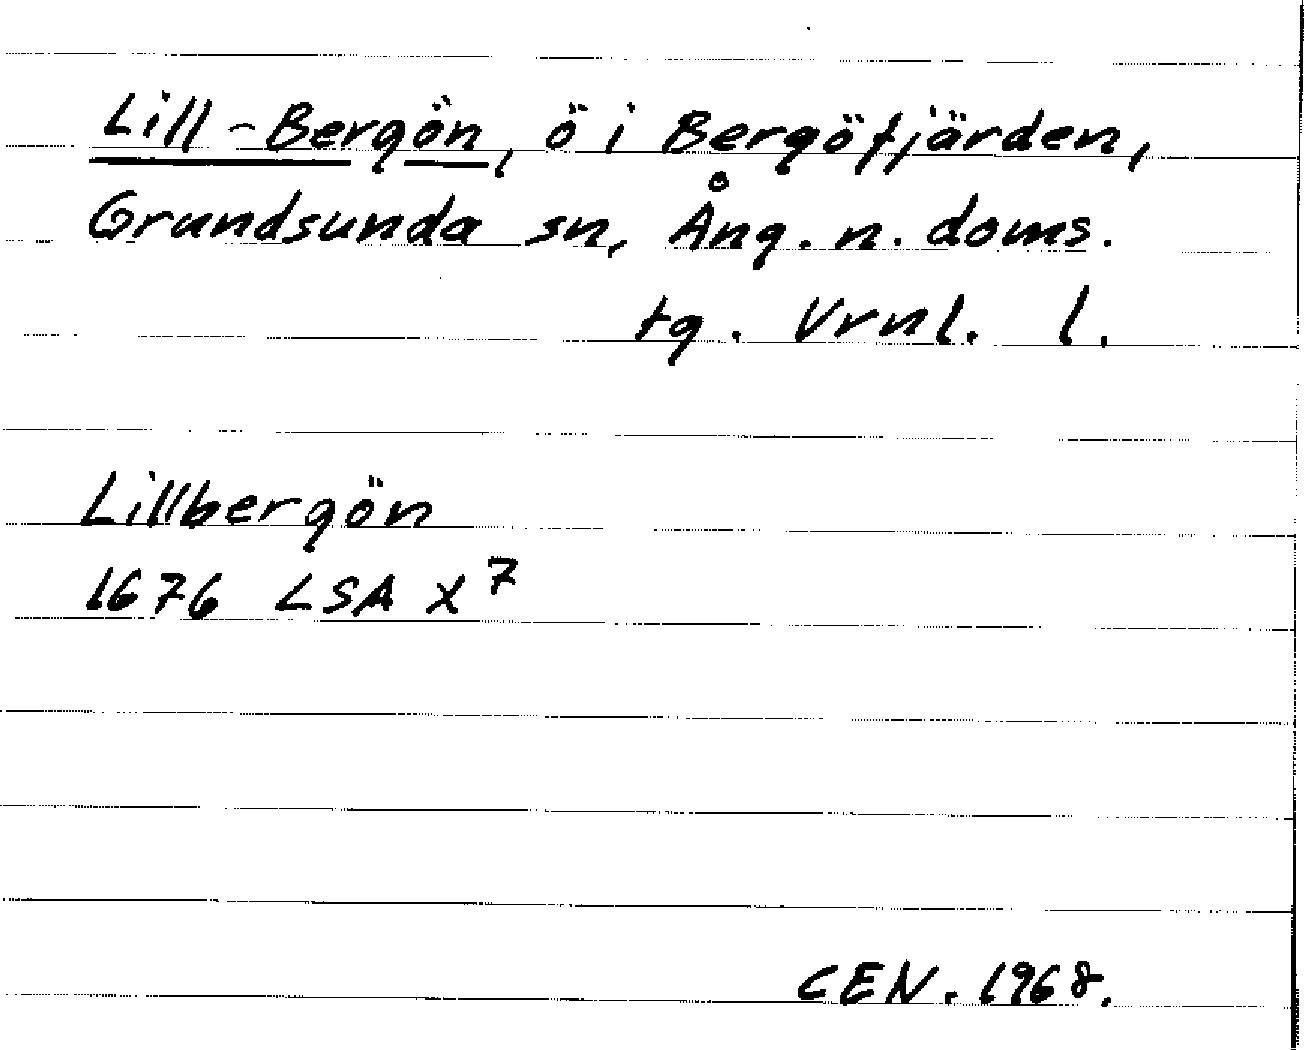 Lill-Bergön, ö i Bergöfjärden,
Grundsunda sn, Ång. n. doms.
tg. Vrnl. l.
Lillbergön
1676 LSA X⁷
CEN. 1968.